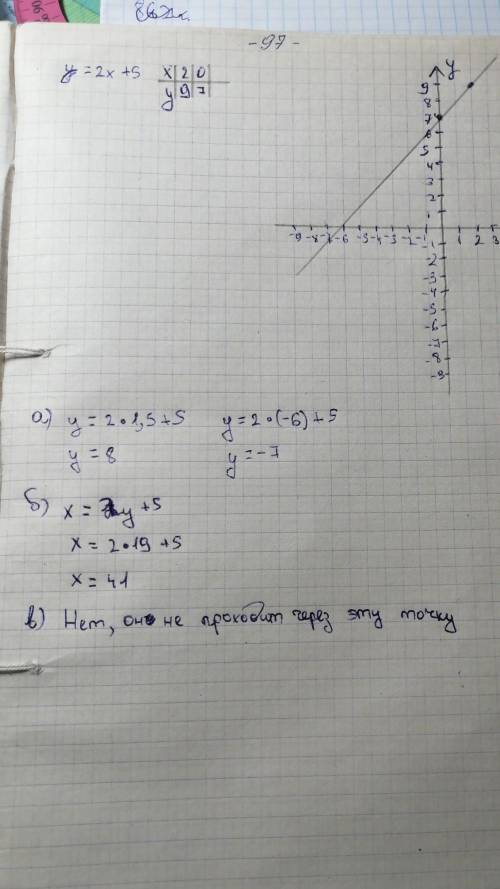 -97-
y = 2x + 5
x | 2 | 0
y | 9 | 7
y
9
8
7
6
5
4
3
2
1
-9 -8 -7 -6 -5 -4 -3 -2 -1 1 2 3
-1
-2
-3
-4
-5
-6
-7
-8
-9
а) y = 2 • 1,5 + 5 y = 2 • (-6) + 5
y = 8 y = -7
б) x = 2y + 5
x = 2 • 19 + 5
x = 41
в) Нет, он не проходит через эту точку